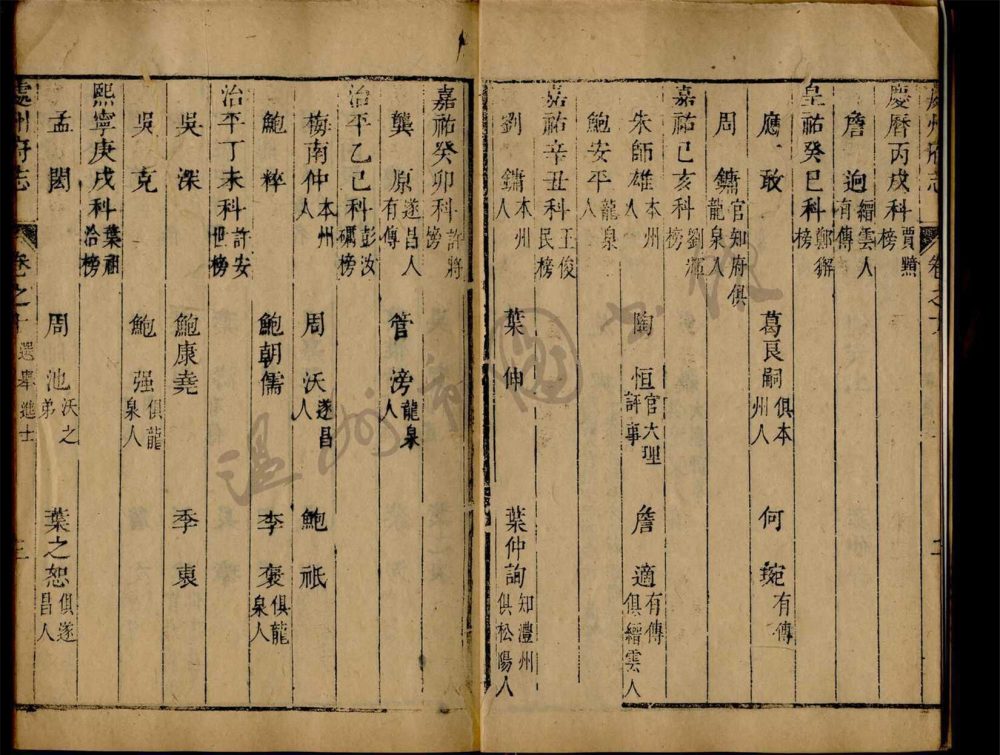 慶曆丙戌科賈黯榜
詹迥縉雲人有傳
皇祐癸巳科鄭獬榜
應敢 葛良嗣俱本州人 何琬有傳
周鏞官知府俱龍泉人
嘉祐己亥科劉煇榜
朱師雄本州人 陶恒官大理評事 詹適有傳俱縉雲人
鮑安平龍泉人
嘉祐辛丑科王俊民榜
劉鏞本州人 葉仲 葉仲詢知澧州俱松陽人
嘉祐癸卯科許將榜
龔原遂昌人有傳 管滂龍泉人
治平乙巳科彭汝礪榜
梅南仲本州人 周沃遂昌人 鮑祇
鮑粹 鮑朝儒 李褒俱龍泉人
治平丁未科許安世榜
吳深 鮑康堯 季衷
吳克 鮑强俱龍泉人
熙寧庚戌科葉祖洽榜
孟閎 周池沃之弟 葉之恕俱遂昌人
處州府志 卷之十 選舉 進士 三